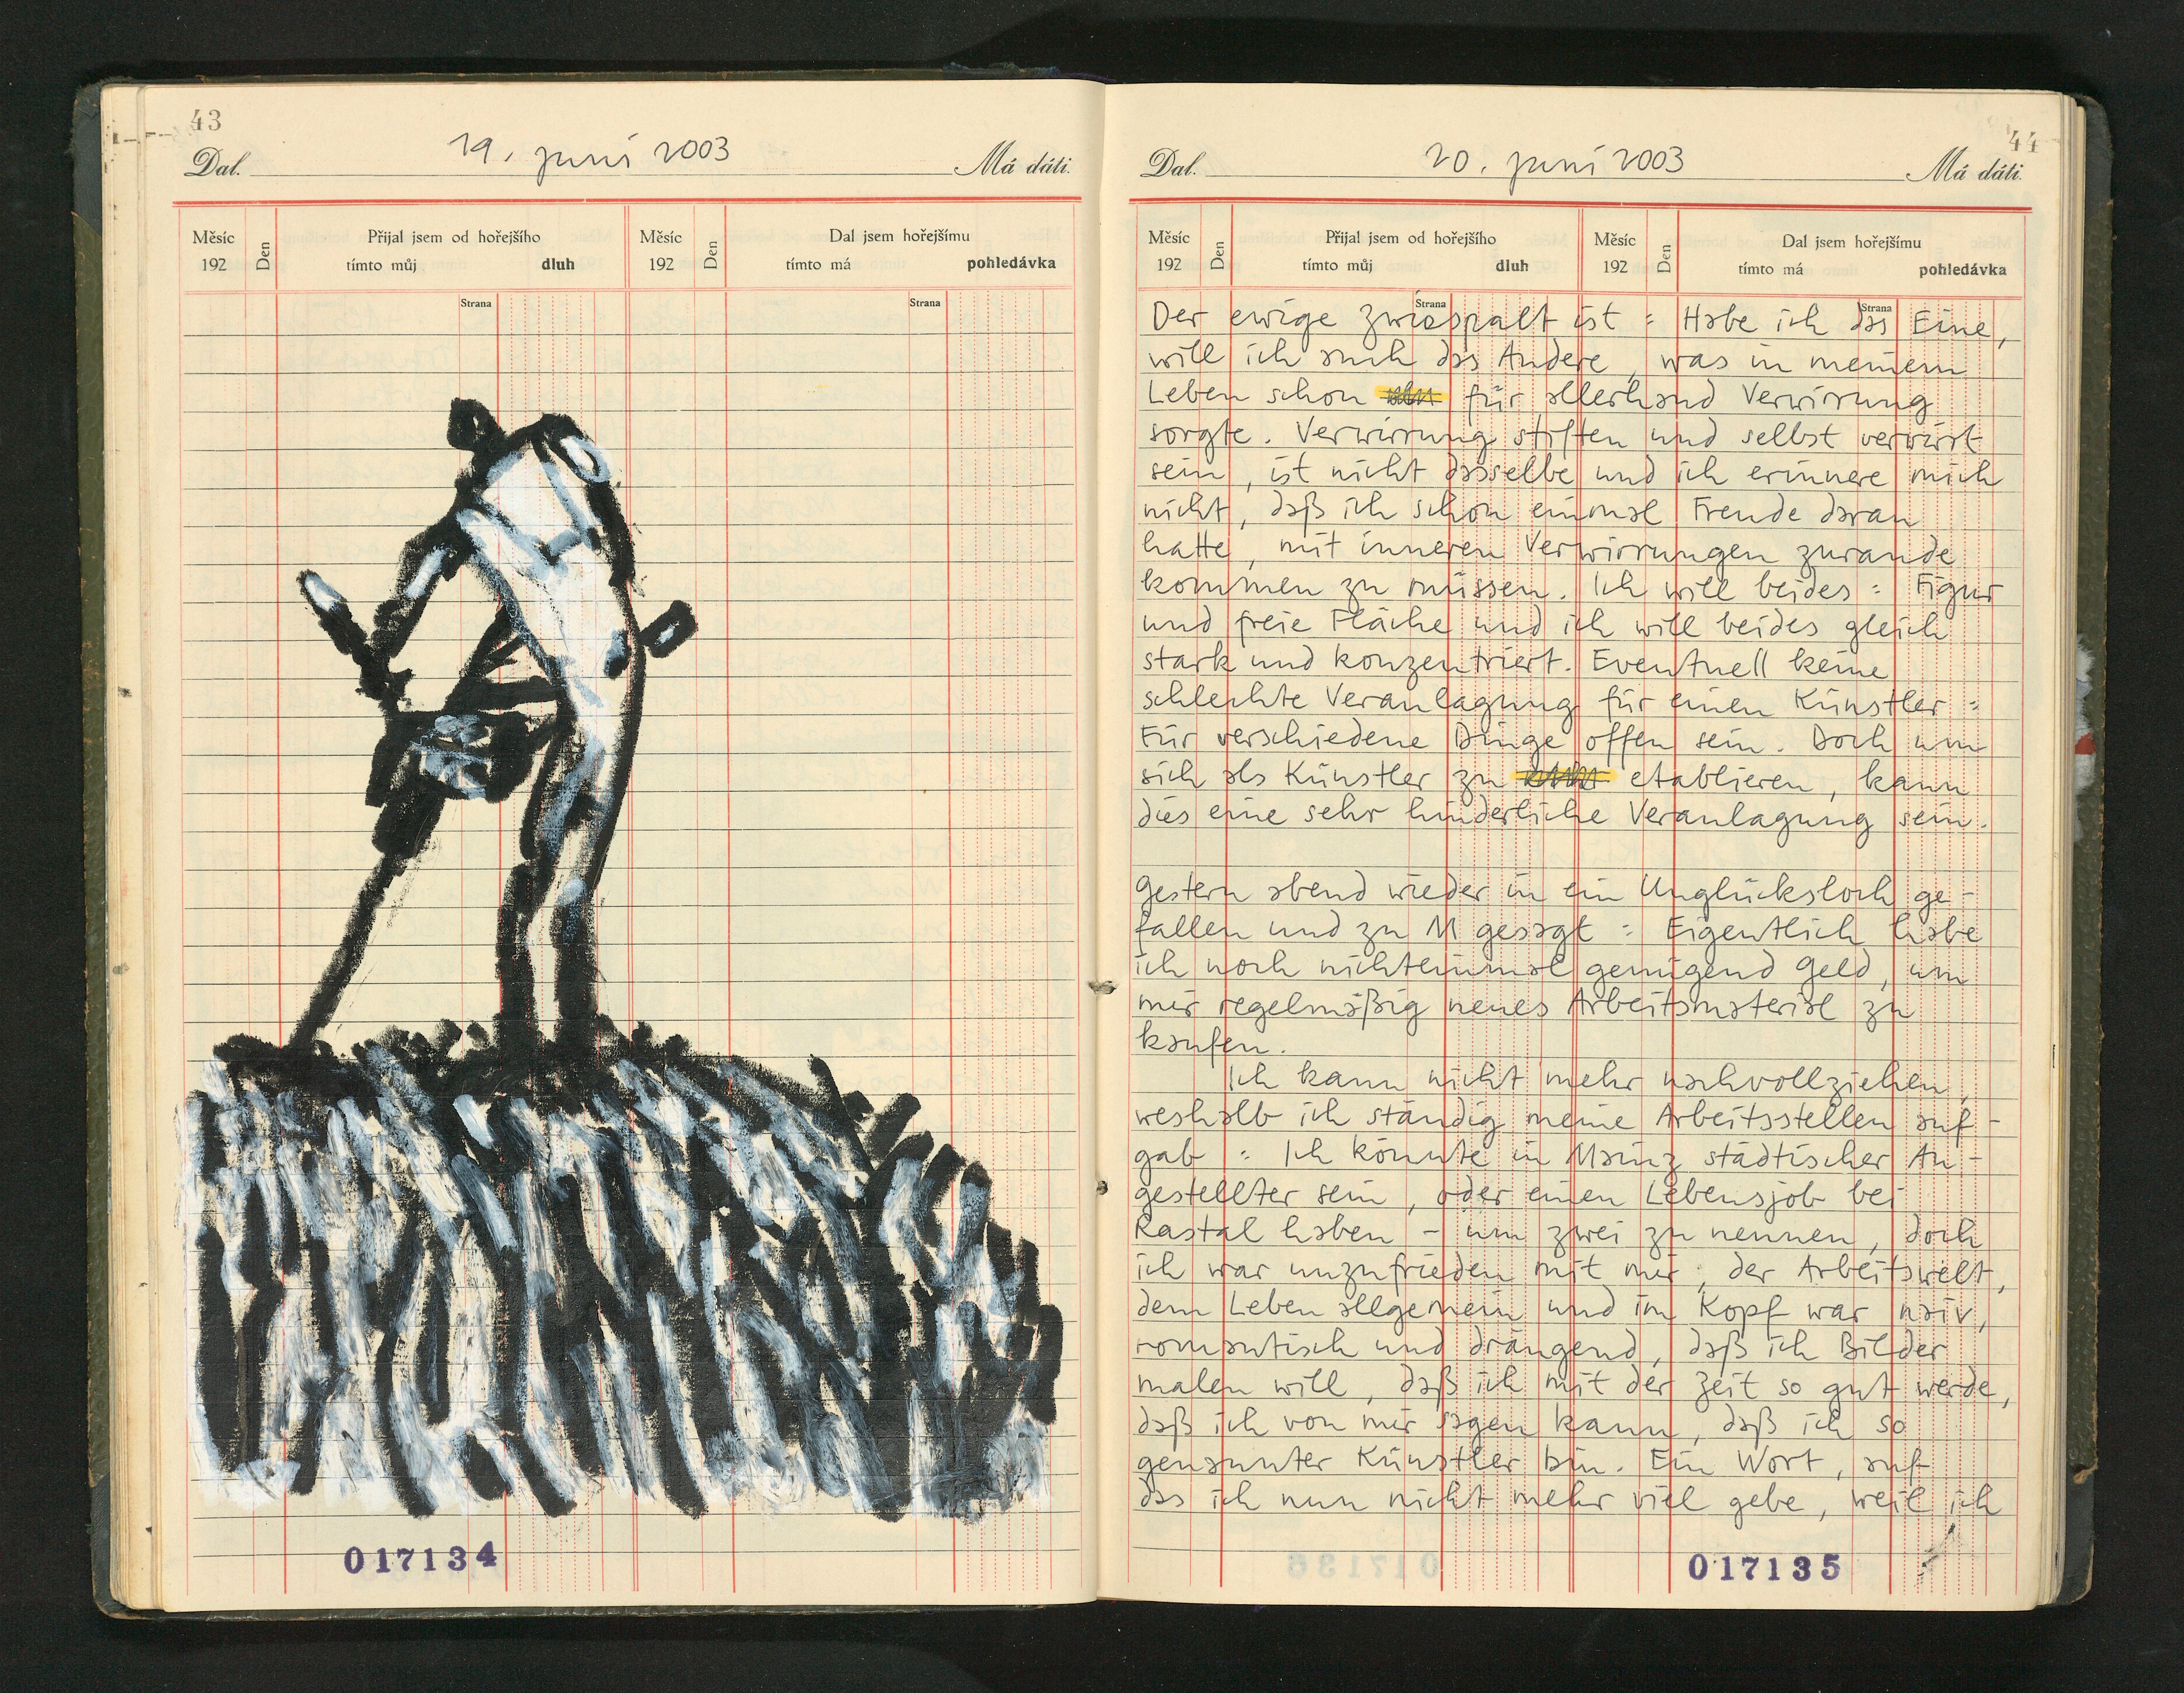 43
19. Juni 2003
Dal. Má dáti.
Měsíc 192 Den Přijal jsem od hořejšího Měsíc 192 Den Dal jsem hořejšímu
tímto můj dluh tímto má pohledávka
Strana Strana
017134
44
20. Juni 2003
Dal. Má dáti.
Měsíc 192 Den Přijal jsem od hořejšího Měsíc 192 Den Dal jsem hořejšímu
tímto můj dluh tímto má pohledávka
Strana Strana
Der ewige Zwiespalt ist : Habe ich das Eine,
will ich auch das Andere, was in meinem
Leben schon für allerhand Verwirrung
sorgte. Verwirrung stiften und selbst verwirrt
sein, ist nicht dasselbe und ich erinnere mich
nicht, daß ich schon einmal Freude daran
hatte, mit inneren Verwirrungen zurande
kommen zu müssen. Ich will beides : Figur
und freie Fläche und ich will beides gleich
stark und konzentriert. Eventuell keine
schlechte Veranlagung für einen Künstler :
Für verschiedene Dinge offen sein. Doch um
sich als Künstler zu etablieren, kann
dies eine sehr hinderliche Veranlagung sein.
Gestern abend wieder in ein Unglücksloch ge-
fallen und zu M gesagt : Eigentlich habe
ich noch nichteinmal genügend Geld, um
mir regelmäßig neues Arbeitsmaterial zu
kaufen.
Ich kann nicht mehr nachvollziehen,
weshalb ich ständig meine Arbeitsstellen auf-
gab : Ich könnte in Mainz städtischer An-
gestellter sein, oder einen Lebensjob bei
Rastal haben - um zwei zu nennen, doch
ich war unzufrieden mit mir, der Arbeitswelt,
dem Leben allgemein und im Kopf war naiv,
romantisch und drängend, daß ich Bilder
malen will, daß ich mit der Zeit so gut werde,
daß ich von mir sagen kann, daß ich so
genannter Künstler bin. Ein Wort, auf
das ich nun nicht mehr viel gebe, weil ich
017135